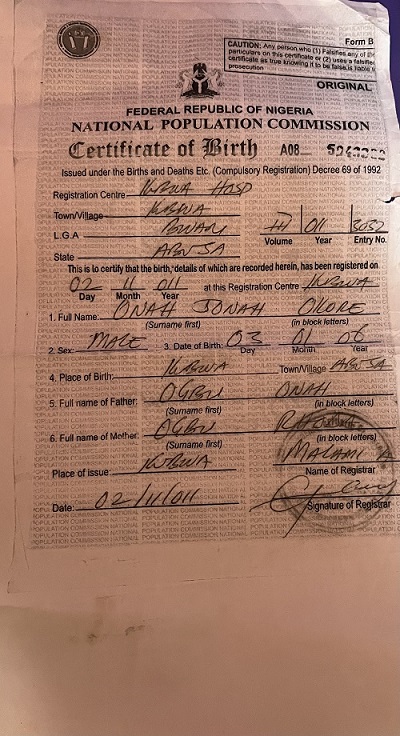 Form B
CAUTION: Any person who (1) Falsifies any of the
particulars on this certificate or (2) uses a falsified
certificate as true knowing it to be false, is liable to
prosecution
ORIGINAL
FEDERAL REPUBLIC OF NIGERIA
NATIONAL POPULATION COMMISSION
Certificate of Birth A08
Issued under the Births and Deaths Etc. (Compulsory Registration) Decree 69 of 1992
Registration Centre KUBWA HOSP
Town/Village KUBWA
L.G.A BWARI III 011 3032
Volume Year Entry No.
State ABUJA
This is to certify that the birth, details of which are recorded herein, has been registered on
02 11 011 at this Registration Centre KUBWA
Day Month Year
1. Full Name: ONAH JONAH OKORE
(Surname first) (in block letters)
2. Sex: MALE 3. Date of Birth: 03 01 06
Day Month Year
4. Place of Birth: KUBWA Town/Village ABUJA
5. Full name of Father: OGBU ONAH
(Surname first) (in block letters)
6. Full name of Mother: OGBU
(Surname first) (in block letters)
Place of issue KUBWA MALAMI
Name of Registrar
Date: 02/11/011
Signature of Registrar